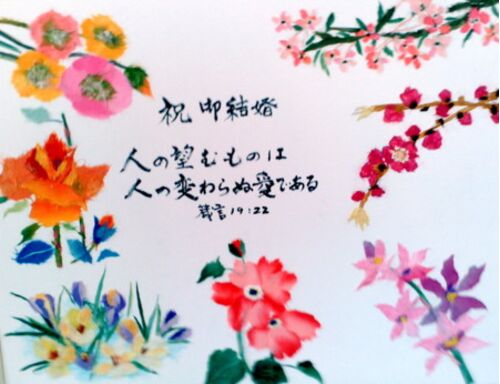 祝御結婚
人の望むものは
人の変わらぬ愛である
箴言19:22